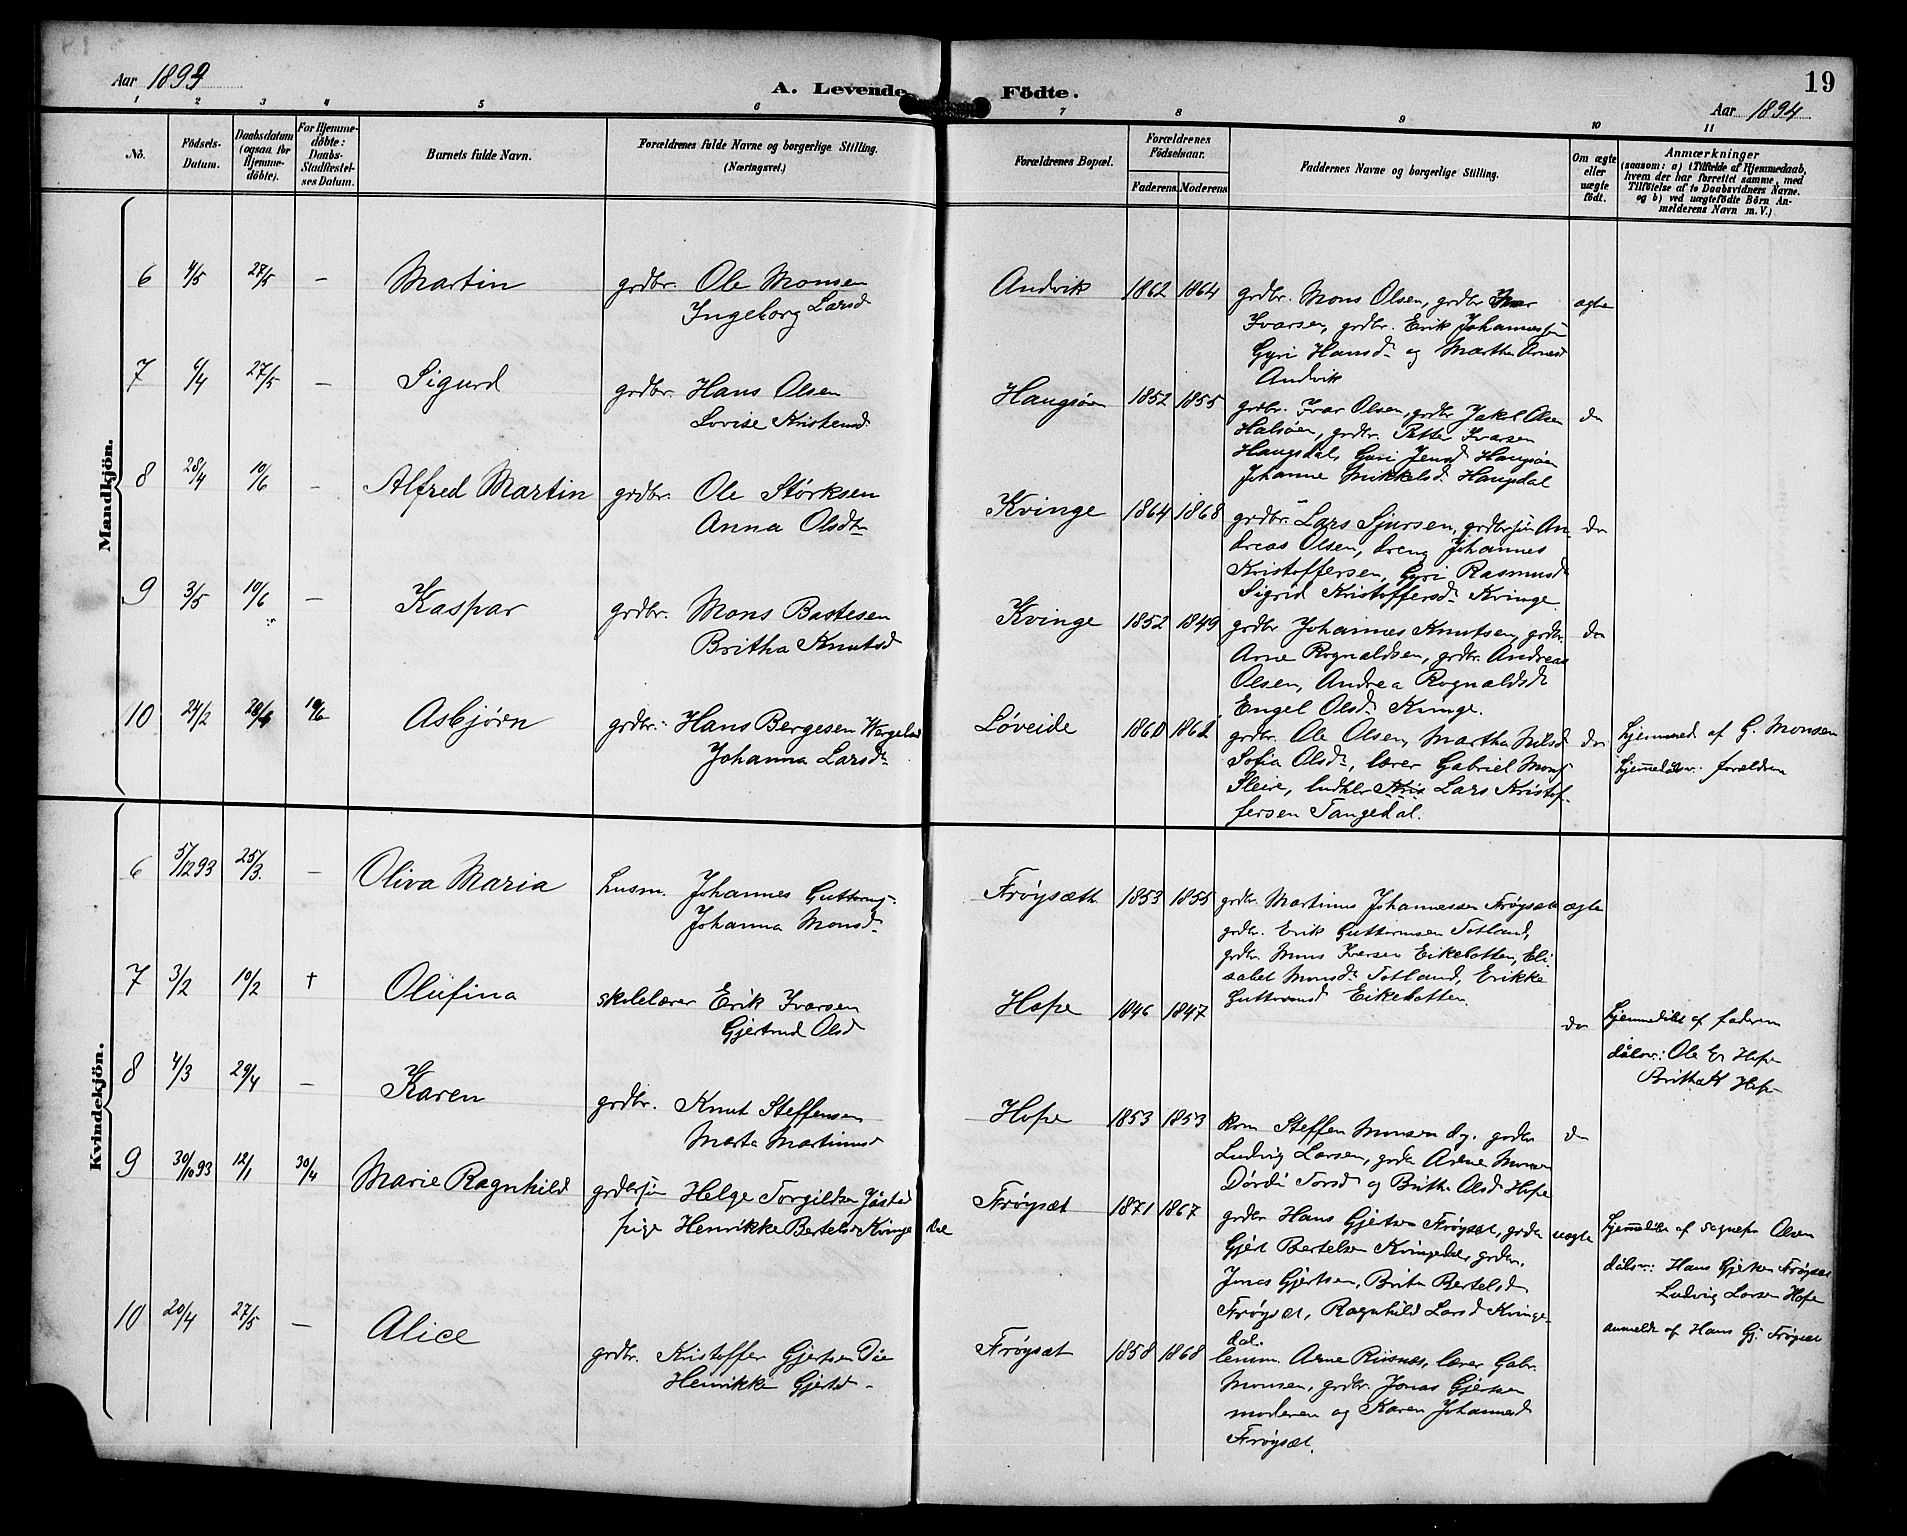 19
Aar 1894
A. Levende Födte.
Aar 1894
1 2 3 4 5 6 7 8 9 10 11
No.
Födsels-Datum.
Daabsdatum (ogsaa for Hjemme-döbte).
For Hjemme-döbte: Daabs-Stadfæstel-ses Datum.
Barnets fulde Navn.
Forældrenes fulde Navne og borgerlige Stilling. (Næringsvei.)
Forældrenes Bopæl.
Forældrenes Födselsaar.
Faderens. Moderens.
Faddernes Navne og borgerlige Stilling.
Om ægte eller uægte födt.
Anmærkninger
(saasom: a) i Tilfælde af Hjemmedaab,
hvem der har forrettet samme, med
Tilföielse af to Daabsvidners Navne.
og b) ved uægtefödte Börn An-
melderens Navn m. V.)
Mandkjön.
6 4/5 27/5 — Martin grdbr. Ole Monsen
Ingeborg Larsd
Andvik 1862 1864
grdbr. Mons Olsen, grdbr Ivar
Ivarsen, grdbr. Erik Johannes
Gyri Hansd og Martha Arnesd
Andvik
ægte
7 4/4 27/5 — Sigurd grdbr. Hans Olsen
Lovise Kristensd
Haugsøen 1852 1855
grdbr. Ivar Olsen, grdbr Jakob Olsen
Halsøen, grdbr. Petter Ivarsen
Haugsdal, Guri Jensd Haugsøen
Johanne Mikkelsd Haugsdal
do
8 28/4 10/6 — Alfred Martin grdbr. Ole Størksen
Anna Olsdtr
Kvinge 1864 1868
grdbr. Lars Sjursen, grdbrsøn An-
dreas Olsen, dreng Johannes
Kristoffersen, Gyri Rasmusd
Sigrid Kristoffersd Kvinge
do
9 3/5 10/6 — Kaspar grdbr. Mons Bastesen
Britha Knutsd
Kvinge 1852 1849
grdbr Johannes Knutsen, grdbr.
Arne Rognaldsen, grdbr. Andreas
Olsen, Andrea Rognaldsd
Engel Olsd Kvinge.
do
10 24/2 28/4 10/6 Asbjørn grdbr. Hans Bergesen Wergeland
Johanna Larsd
Løveide 1860 1862
grdbr. Ole Olsen, Martha Nilsd
Sofia Olsd, lærer Gabriel Mons
Sleire, Lars Kristof-
fersen Tangedal.
do
hjemmed af G. Monsen
forældrene
Kvindekjön.
6 5/12 93 25/3. — Oliva Maria husm. Johannes Guttorms
Johanna Monsd
Frøysæth 1853 1855
grdbr. Martinus Johannessen Frøysæt
grdbr. Erik Guttormsen Totland,
grdbr Mons Iversen Eikebotten, Eli
sabet Monsd Totland, Erikke
Guttormsd Eikebotten.
ægte
7 3/2 10/2 † Olufina skolelærer Erik Ivarsen
Gjertrud Olsd
Hope 1846 1847
do
hjemmedøbt af faderen
dåbsv: Ole Er Hope
Britha K Hope
8 4/3 29/4 — Karen grdbr. Knut Steffensen
Marta Martinusd
Hope 1853 1853
kom Steffen Monsen Ly. grdbr
Ludvig Larsen, grdbr Arne Monsen
Dordi Torsd og Brith Olsd Hope
do
9 30/10 93 12/1 30/4 Marie Ragnhild grdbrsøn Helge Torgildsen Jøstad
pige Henrikke Bertelsd Kvinge dal
Frøysæt 1871 1867
grdbr Hans Gjertsen Frøysæt, grdbr
Gjert Bertelsen Kvingedal, grdbr.
Jonas Gjertsen, Brita Bertelsd
Frøysæt, Ragnhild Larsd Kvinge-
dal.
uægte
hjemmedøbt af sognepr Olsen
dåbsv: Hans Gjertsen Frøysæt
Ludvig Larsen Hope
anmeldt af Hans Gj. Frøysæt
10 20/4 27/5 — Alice grdbr. Kristoffer Gjertsen
Henrikke Gjertsd
Frøysæt 1858 1868
lensm. Arne Risnes, lærer Gabr.
Monsen, grdbr. Jonas Gjertsen
moderen og Karen Johannesd
Frøysæt.